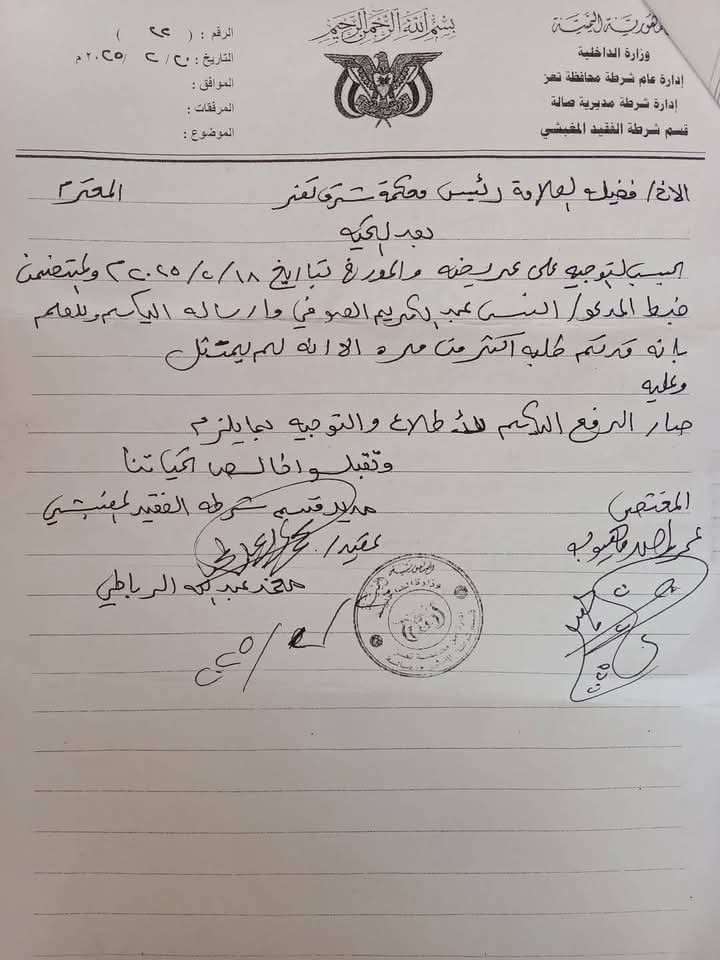 بسم الله الرحمن الرحيم
الجمهورية اليمنية
وزارة الداخلية
إدارة عام شرطة محافظة تعز
إدارة شرطة مديرية صالة
قسم شرطة الفقيد المغبشي
الرقم : ( ٢٢ )
التاريخ : ٢٠ / ٢ / ٢٠٢٥ م
الموافق :
المرفقات :
الموضوع :
الاخ/ فضيلة العلامة رئيس محكمة شرق تعز المحترم
بعد التحية
حسب التوجيه على عريضة والمؤرخ بتاريخ ١٨/٢/٢٠٢٥م والمتضمن
ضبط المدعو/ عبدالكريم الصوفي وارساله اليكم وللعلم
بانه قد تم طلبه اكثر من مره الا انه لم يمتثل
وعليه
صار الرفع اليكم للأطلاع والتوجيه بما يلزم
وتقبلوا خالص تحياتنا
المختص
مدير قسم شرطة الفقيد المغبشي
عقيد/
محمد عبدالله الرباطي